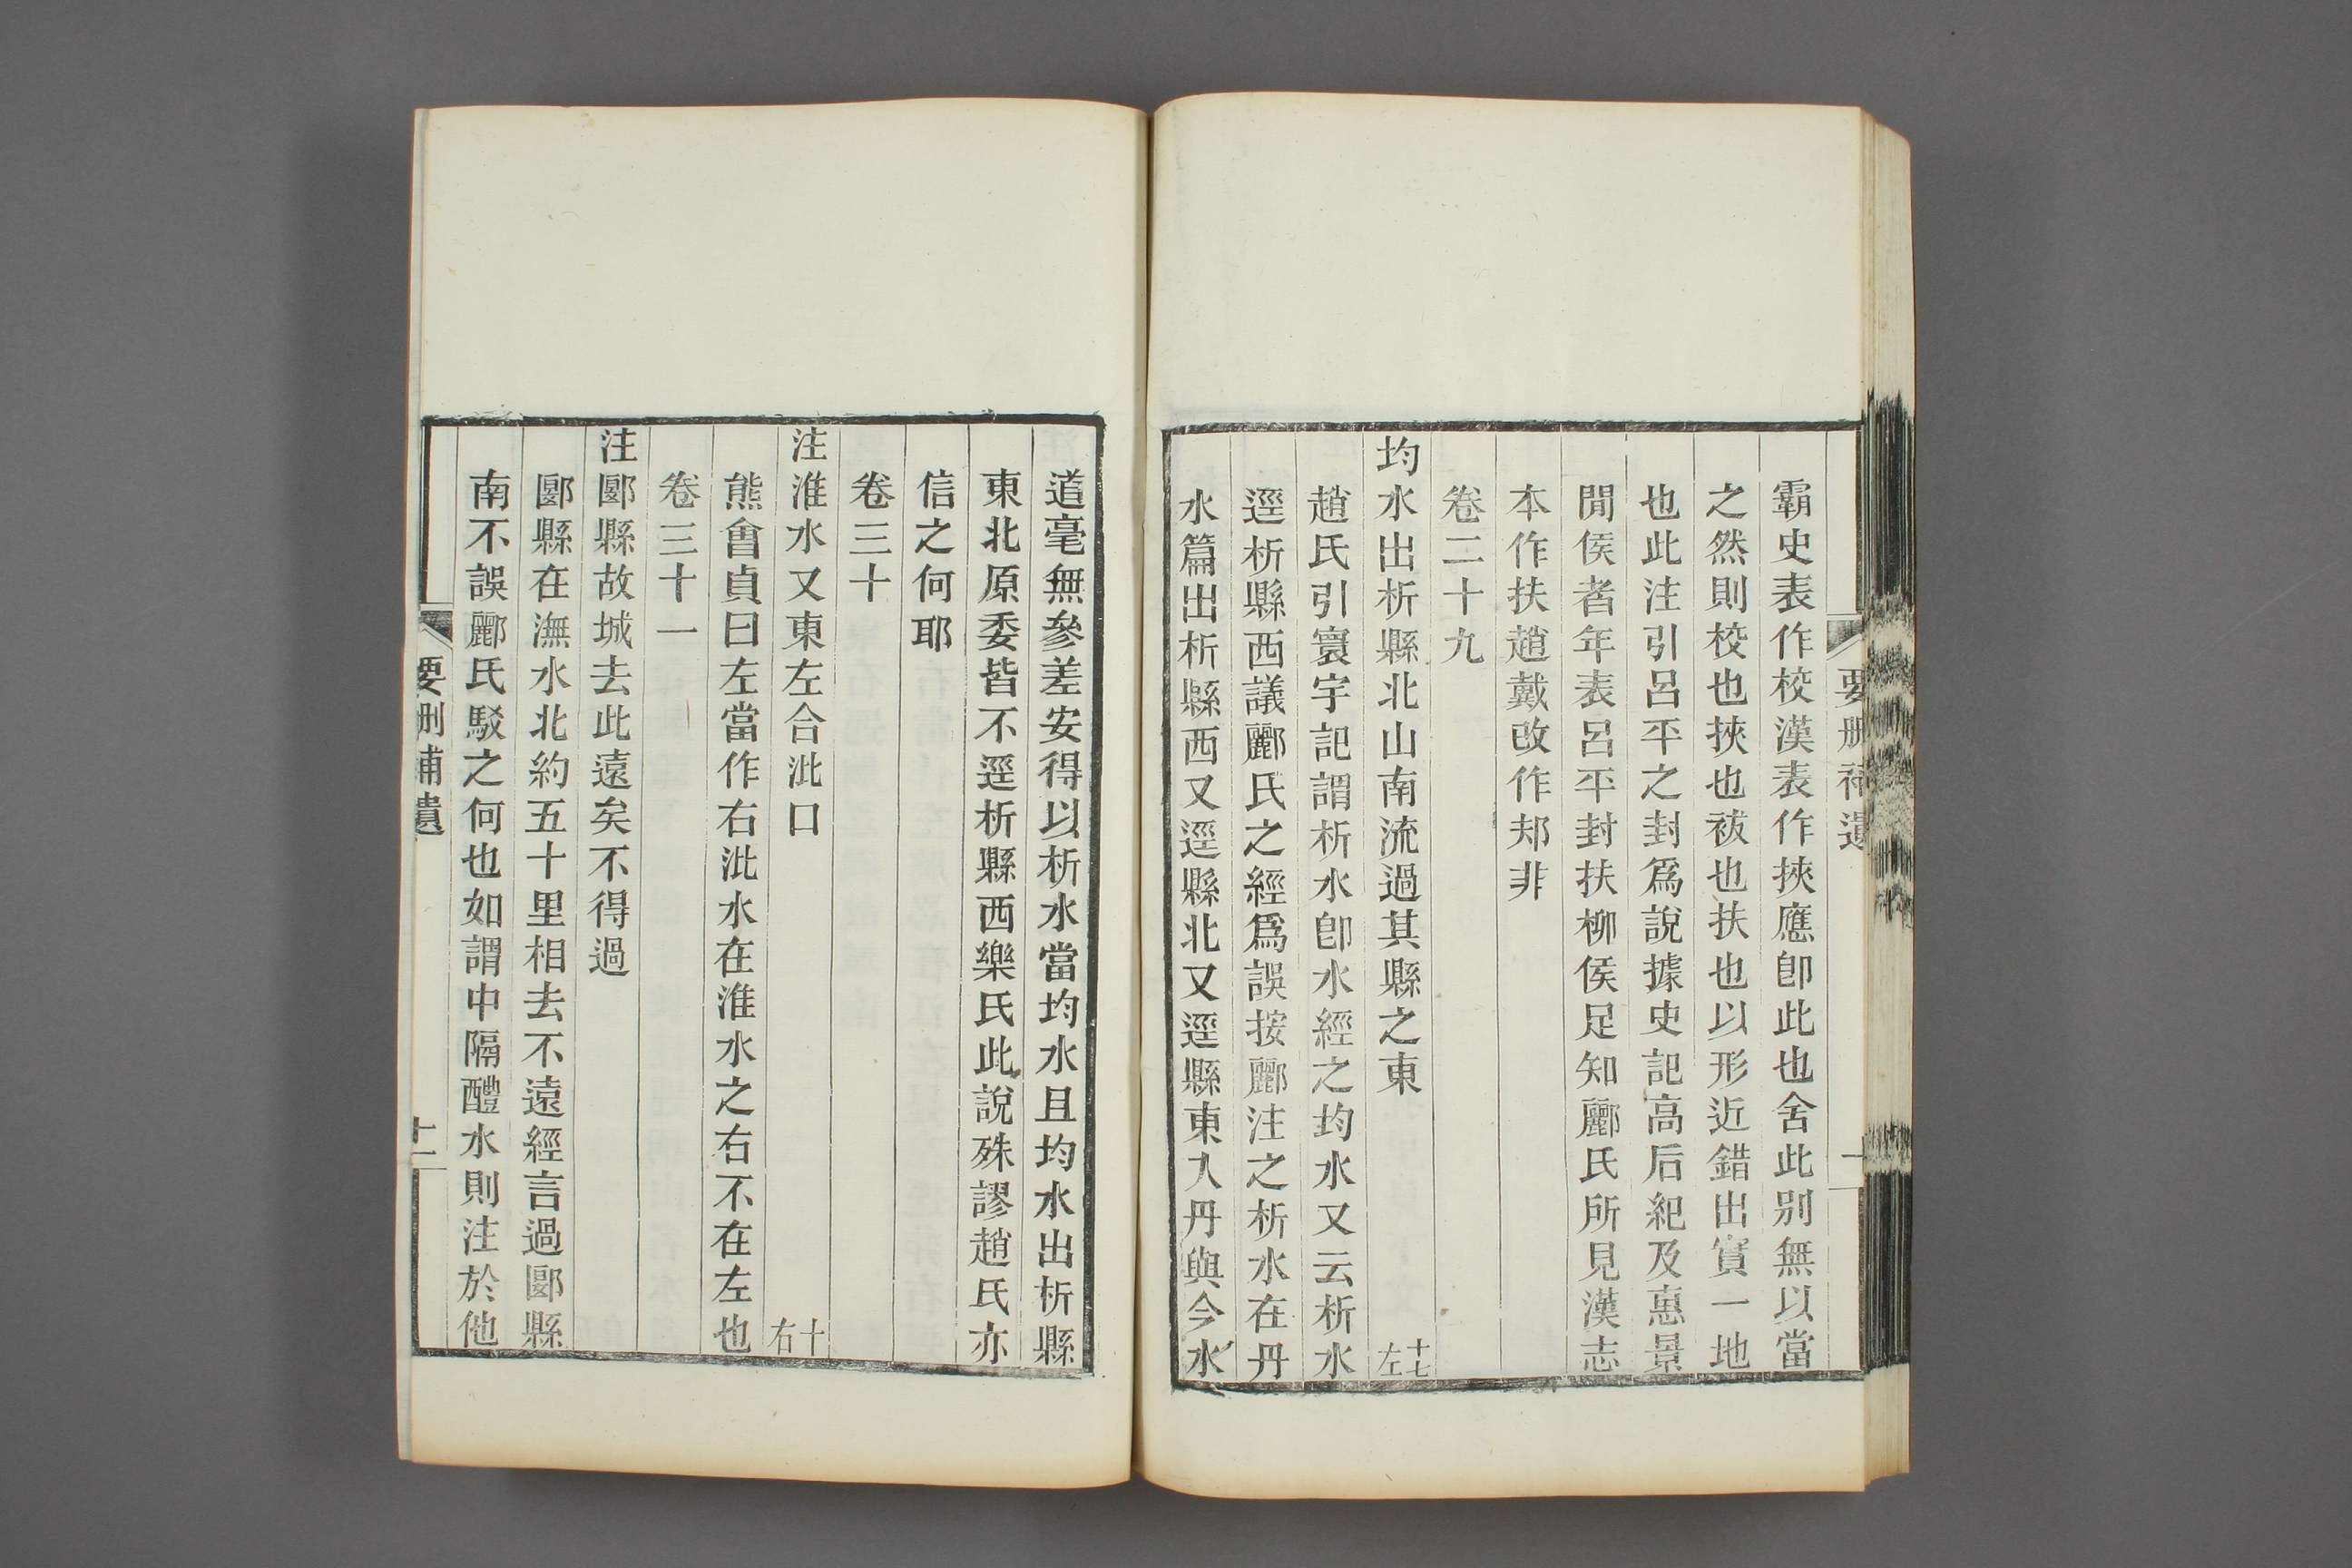 要刪補遺
霸史表作校漢表作挾應卽此也舍此别無以當
之然則校也挾也祓也扶也以形近錯出實一地
也此注引呂平之封爲說據史記高后紀及惠景
閒侯者年表呂平封扶柳侯足知酈氏所見漢志
本作扶趙戴改作邞非
卷二十九
均水出析縣北山南流過其縣之東 十七左
趙氏引寰宇記謂析水卽水經之均水又云析水
逕析縣西議酈氏之經爲誤按酈注之析水在丹
水篇出析縣西又逕縣北又逕縣東入丹與今水
道毫無參差安得以析水當均水且均水出析縣
東北原委皆不逕析縣西樂氏此說殊謬趙氏亦
信之何耶
卷三十
注淮水又東左合泚口 十右
熊會貞曰左當作右泚水在淮水之右不在左也
卷三十一
注郾縣故城去此遠矣不得過
郾縣在潕水北約五十里相去不遠經言過郾縣
南不誤酈氏駁之何也如謂中隔醴水則注於他
要刪補遺
十一